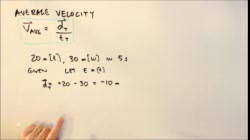 AVERAGE VELOCITY
V⃗AVE = d⃗T / tT
20m [E], 30m [W] IN 5s
GIVEN LET E = (+)
d⃗T = +20 - 30 = -10 m